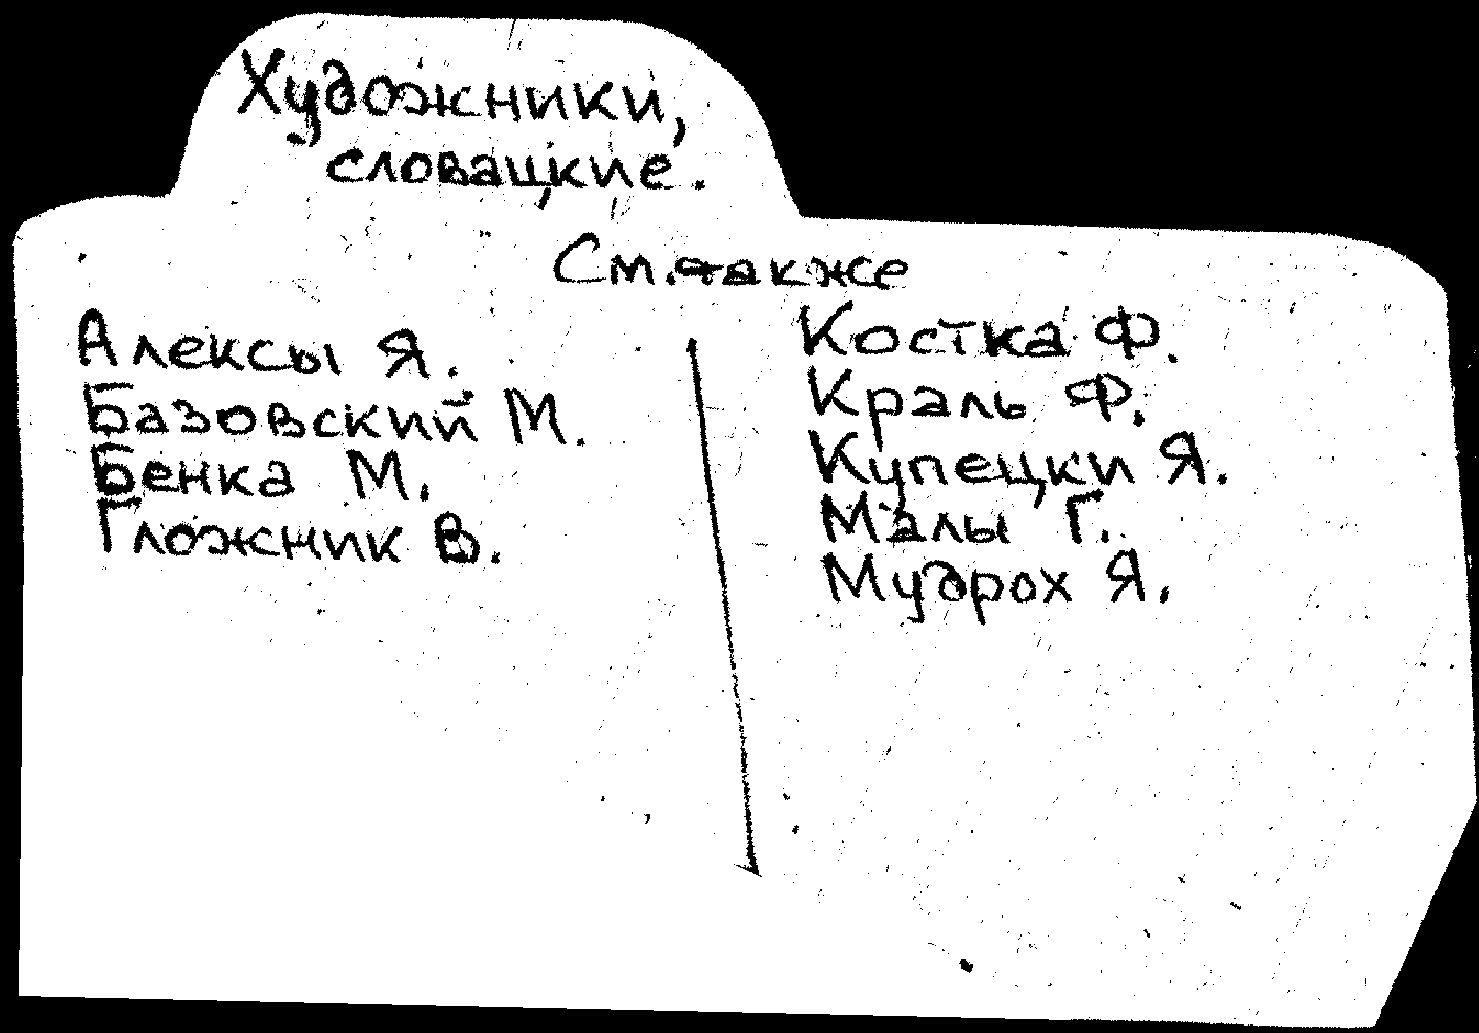 Художники,
словацкие.
См. также
Алексы Я.
Базовский М.
Бенка М.
Гложник В.
Костка Ф.
Краль Ф.
Купецки Я.
Малы Г.
Мудрох Я.